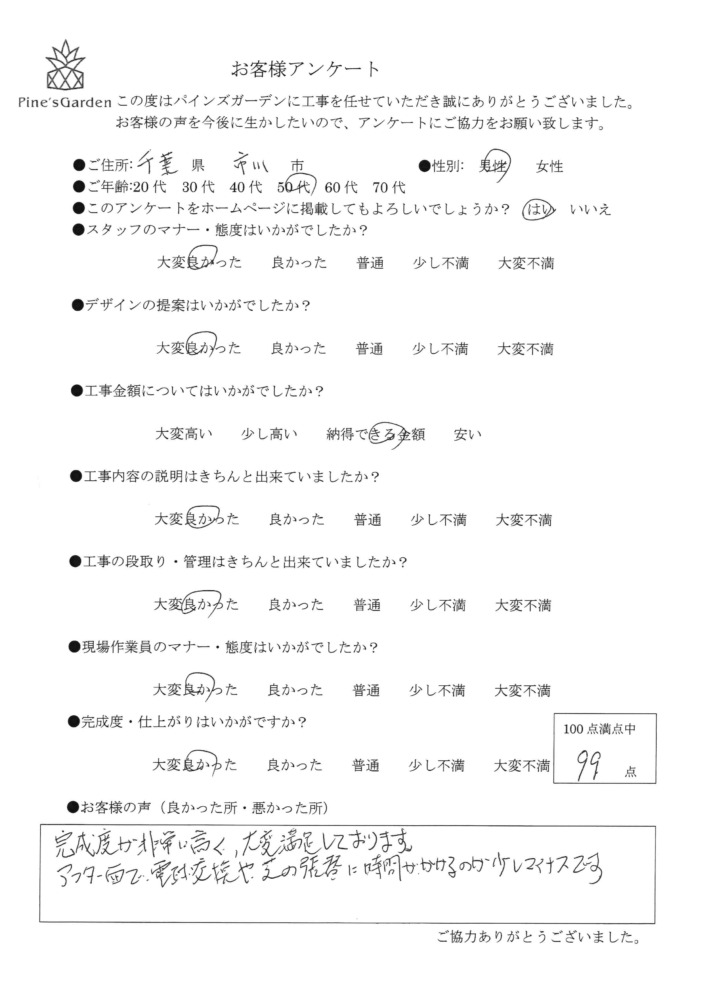 お客様アンケート
Pine'sGarden この度はパインズガーデンに工事を任せていただき誠にありがとうございました。
お客様の声を今後に生かしたいので、アンケートにご協力をお願い致します。
●ご住所: 千葉 県 市川 市 ●性別: 男性 女性
●ご年齢:20代 30代 40代 50代 60代 70代
●このアンケートをホームページに掲載してもよろしいでしょうか？ はい いいえ
●スタッフのマナー・態度はいかがでしたか？
大変良かった 良かった 普通 少し不満 大変不満
●デザインの提案はいかがでしたか？
大変良かった 良かった 普通 少し不満 大変不満
●工事金額についてはいかがでしたか？
大変高い 少し高い 納得できる金額 安い
●工事内容の説明はきちんと出来ていましたか？
大変良かった 良かった 普通 少し不満 大変不満
●工事の段取り・管理はきちんと出来ていましたか？
大変良かった 良かった 普通 少し不満 大変不満
●現場作業員のマナー・態度はいかがでしたか？
大変良かった 良かった 普通 少し不満 大変不満
●完成度・仕上がりはいかがですか？
大変良かった 良かった 普通 少し不満 大変不満
100点満点中
99 点
●お客様の声（良かった所・悪かった所）
完成度が非常に高く、大変満足しております。
アフター面で、電球交換や芝の張替に時間がかかるのが少しマイナスです
ご協力ありがとうございました。